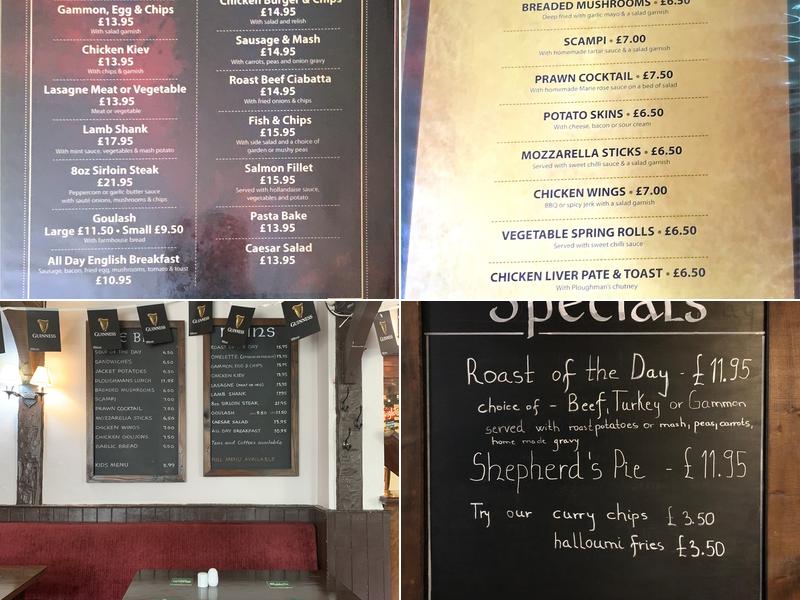 Gammon, Egg & Chips
£13.95
With salad garnish
Chicken Kiev
£13.95
With chips & garnish
Lasagne Meat or Vegetable
£13.95
Meat or vegetable
Lamb Shank
£17.95
With mint sauce, vegetables & mash potato
8oz Sirloin Steak
£21.95
Peppercorn or garlic butter sauce
with sauté onions, mushrooms & chips
Goulash
Large £11.50 • Small £9.50
With farmhouse bread
All Day English Breakfast
Sausage, bacon, fried egg, mushrooms, tomato & toast
£10.95
Chicken Burger & Chips
£14.95
With salad and relish
Sausage & Mash
£14.95
With carrots, peas and onion gravy
Roast Beef Ciabatta
£14.95
With fried onions & chips
Fish & Chips
£15.95
With side salad and a choice of
garden or mushy peas
Salmon Fillet
£15.95
Served with hollandaise sauce,
vegetables and potato
Pasta Bake
£13.95
Caesar Salad
£13.95
BREADED MUSHROOMS • £6.50
Deep fried with garlic mayo & a salad garnish
SCAMPI • £7.00
With homemade tartar sauce & a salad garnish
PRAWN COCKTAIL • £7.50
With homemade Marie rose sauce on a bed of salad
POTATO SKINS • £6.50
With cheese, bacon or sour cream
MOZZARELLA STICKS • £6.50
Served with sweet chilli sauce & a salad garnish
CHICKEN WINGS • £7.00
BBQ or spicy jerk with a salad garnish
VEGETABLE SPRING ROLLS • £6.50
Served with sweet chilli sauce
CHICKEN LIVER PATE & TOAST • £6.50
With Ploughman's chutney
GUINNESS
GUINNESS
GUINNESS
GUINNESS
GUINNESS
GUINNESS
SOUP OF THE DAY
SANDWICHES
JACKET POTATOES
PLOUGHMANS LUNCH
BREADED MUSHROOMS
SCAMPI
PRAWN COCKTAIL
MOZZARELLA STICKS
CHICKEN WINGS
CHICKEN GOUJONS
GARLIC BREAD
KIDS MENU 8.99
ROAST OF THE DAY
OMELETTE
GAMMON, EGG & CHIPS
CHICKEN KIEV
LASAGNE
LAMB SHANK
8oz SIRLOIN STEAK
GOULASH
CAESAR SALAD
ALL DAY BREAKFAST
Teas and Coffees available
FULL MENU AVAILABLE
Specials
Roast of the Day - £11.95
choice of - Beef, Turkey or Gammon
served with roast potatoes or mash, peas, carrots,
home made gravy
Shepherd's Pie - £11.95
Try our curry chips £3.50
halloumi fries £3.50